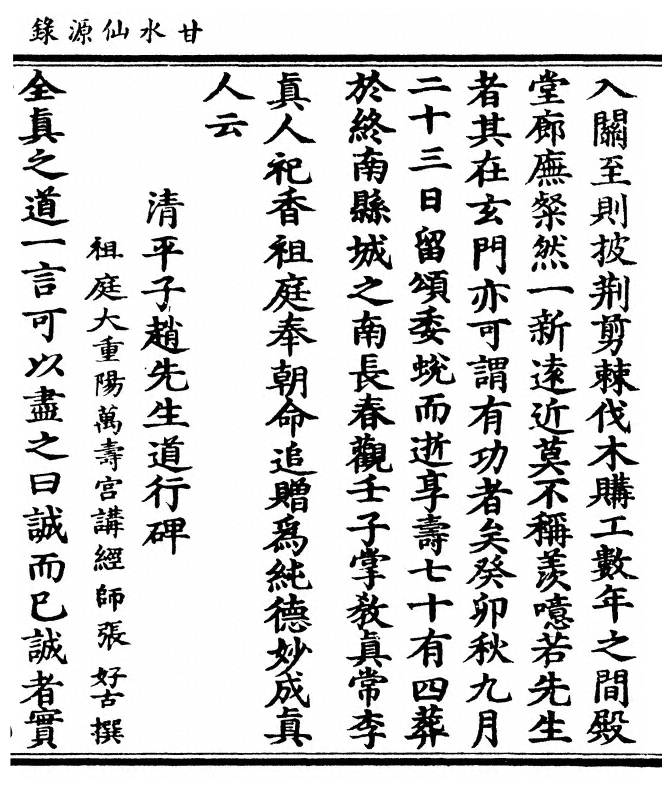 甘水仙源錄
入關至則披荆剪棘伐木購工數年之間殿
堂廊廡粲然一新遠近莫不稱羨噫若先生
者其在玄門亦可謂有功者矣癸卯秋九月
二十三日留頌委蛻而逝享壽七十有四葬
於終南縣城之南長春觀壬子掌敎眞常李
眞人祀香祖庭奉朝命追贈爲純德妙成眞
人云
清平子趙先生道行碑
祖庭大重陽萬壽宮講經師張好古撰
全眞之道一言可以盡之曰誠而已誠者實